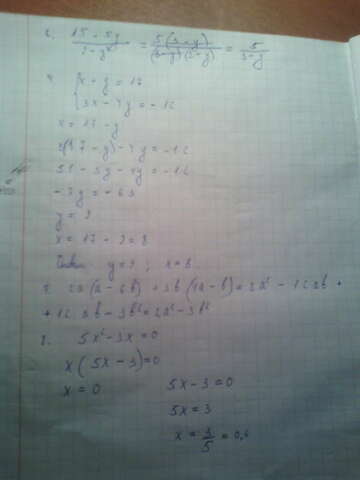 15 - 5y / 9 - y² = 5(3 - y) / (3-y)(3-y) = 5 / 3-y
x + y = 17
5x - 4y = -12
x = 17 - y
- 4y = -12
51 - 3y - 4y = -12
- 7y = - 63
y = 9
x = 17 - 9 = 8
Ответ: y = 9 ; x = 8
2a (a - 6b) + 3b (4a - b) = 2a² - 12ab +
+ 12ab - 3b² = 2a² - 3b²
8. 5x² - 3x = 0
x ( 5x - 3 ) = 0
x = 0
5x - 3 = 0
5x = 3
x = 3/5 = 0,6